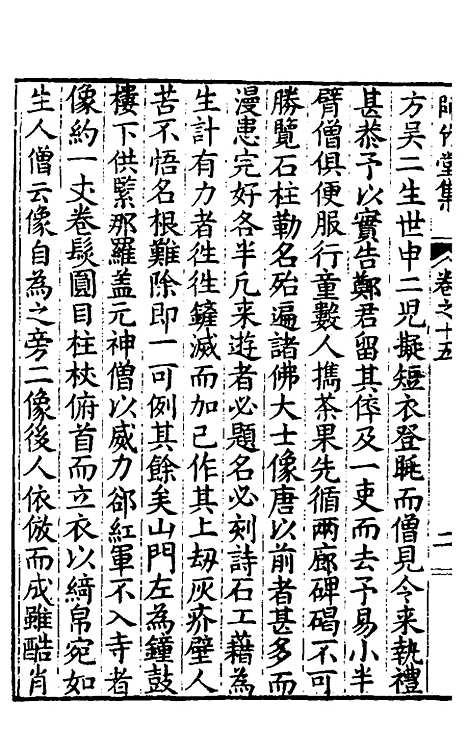 師竹堂集
卷之十五
二
方吳二生世申二児擬短衣登眺而僧見令來執禮
甚恭予以實告鄭君留其倅及一吏而去予易小半
臂僧俱便服行童數人擕茶果先循兩廊碑碣不可
勝覽石柱勒名殆遍諸佛大士像唐以前者甚多而
漫患完好各半凢来遊者必題名必刻詩石工藉為
生計有力者徃徃鏟滅而加己作其上刼灰疥壁人
苦不悟名根難除即一可例其餘矣山門左為鐘鼓
樓下供緊那羅盖元神僧以威力郤紅軍不入寺者
像約一丈卷髮圓目柱杖俯首而立衣以綺帛宛如
生人僧云像自為之旁二像後人依倣而成雖酷肖